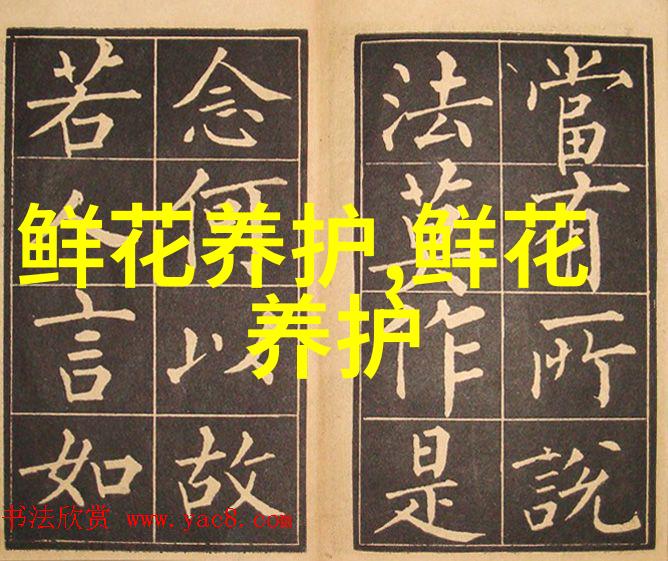 鲜花养护,鲜花
养护
當有所說
法莫作是
念何以故
若人言如
书法欣赏 www.yac8.com